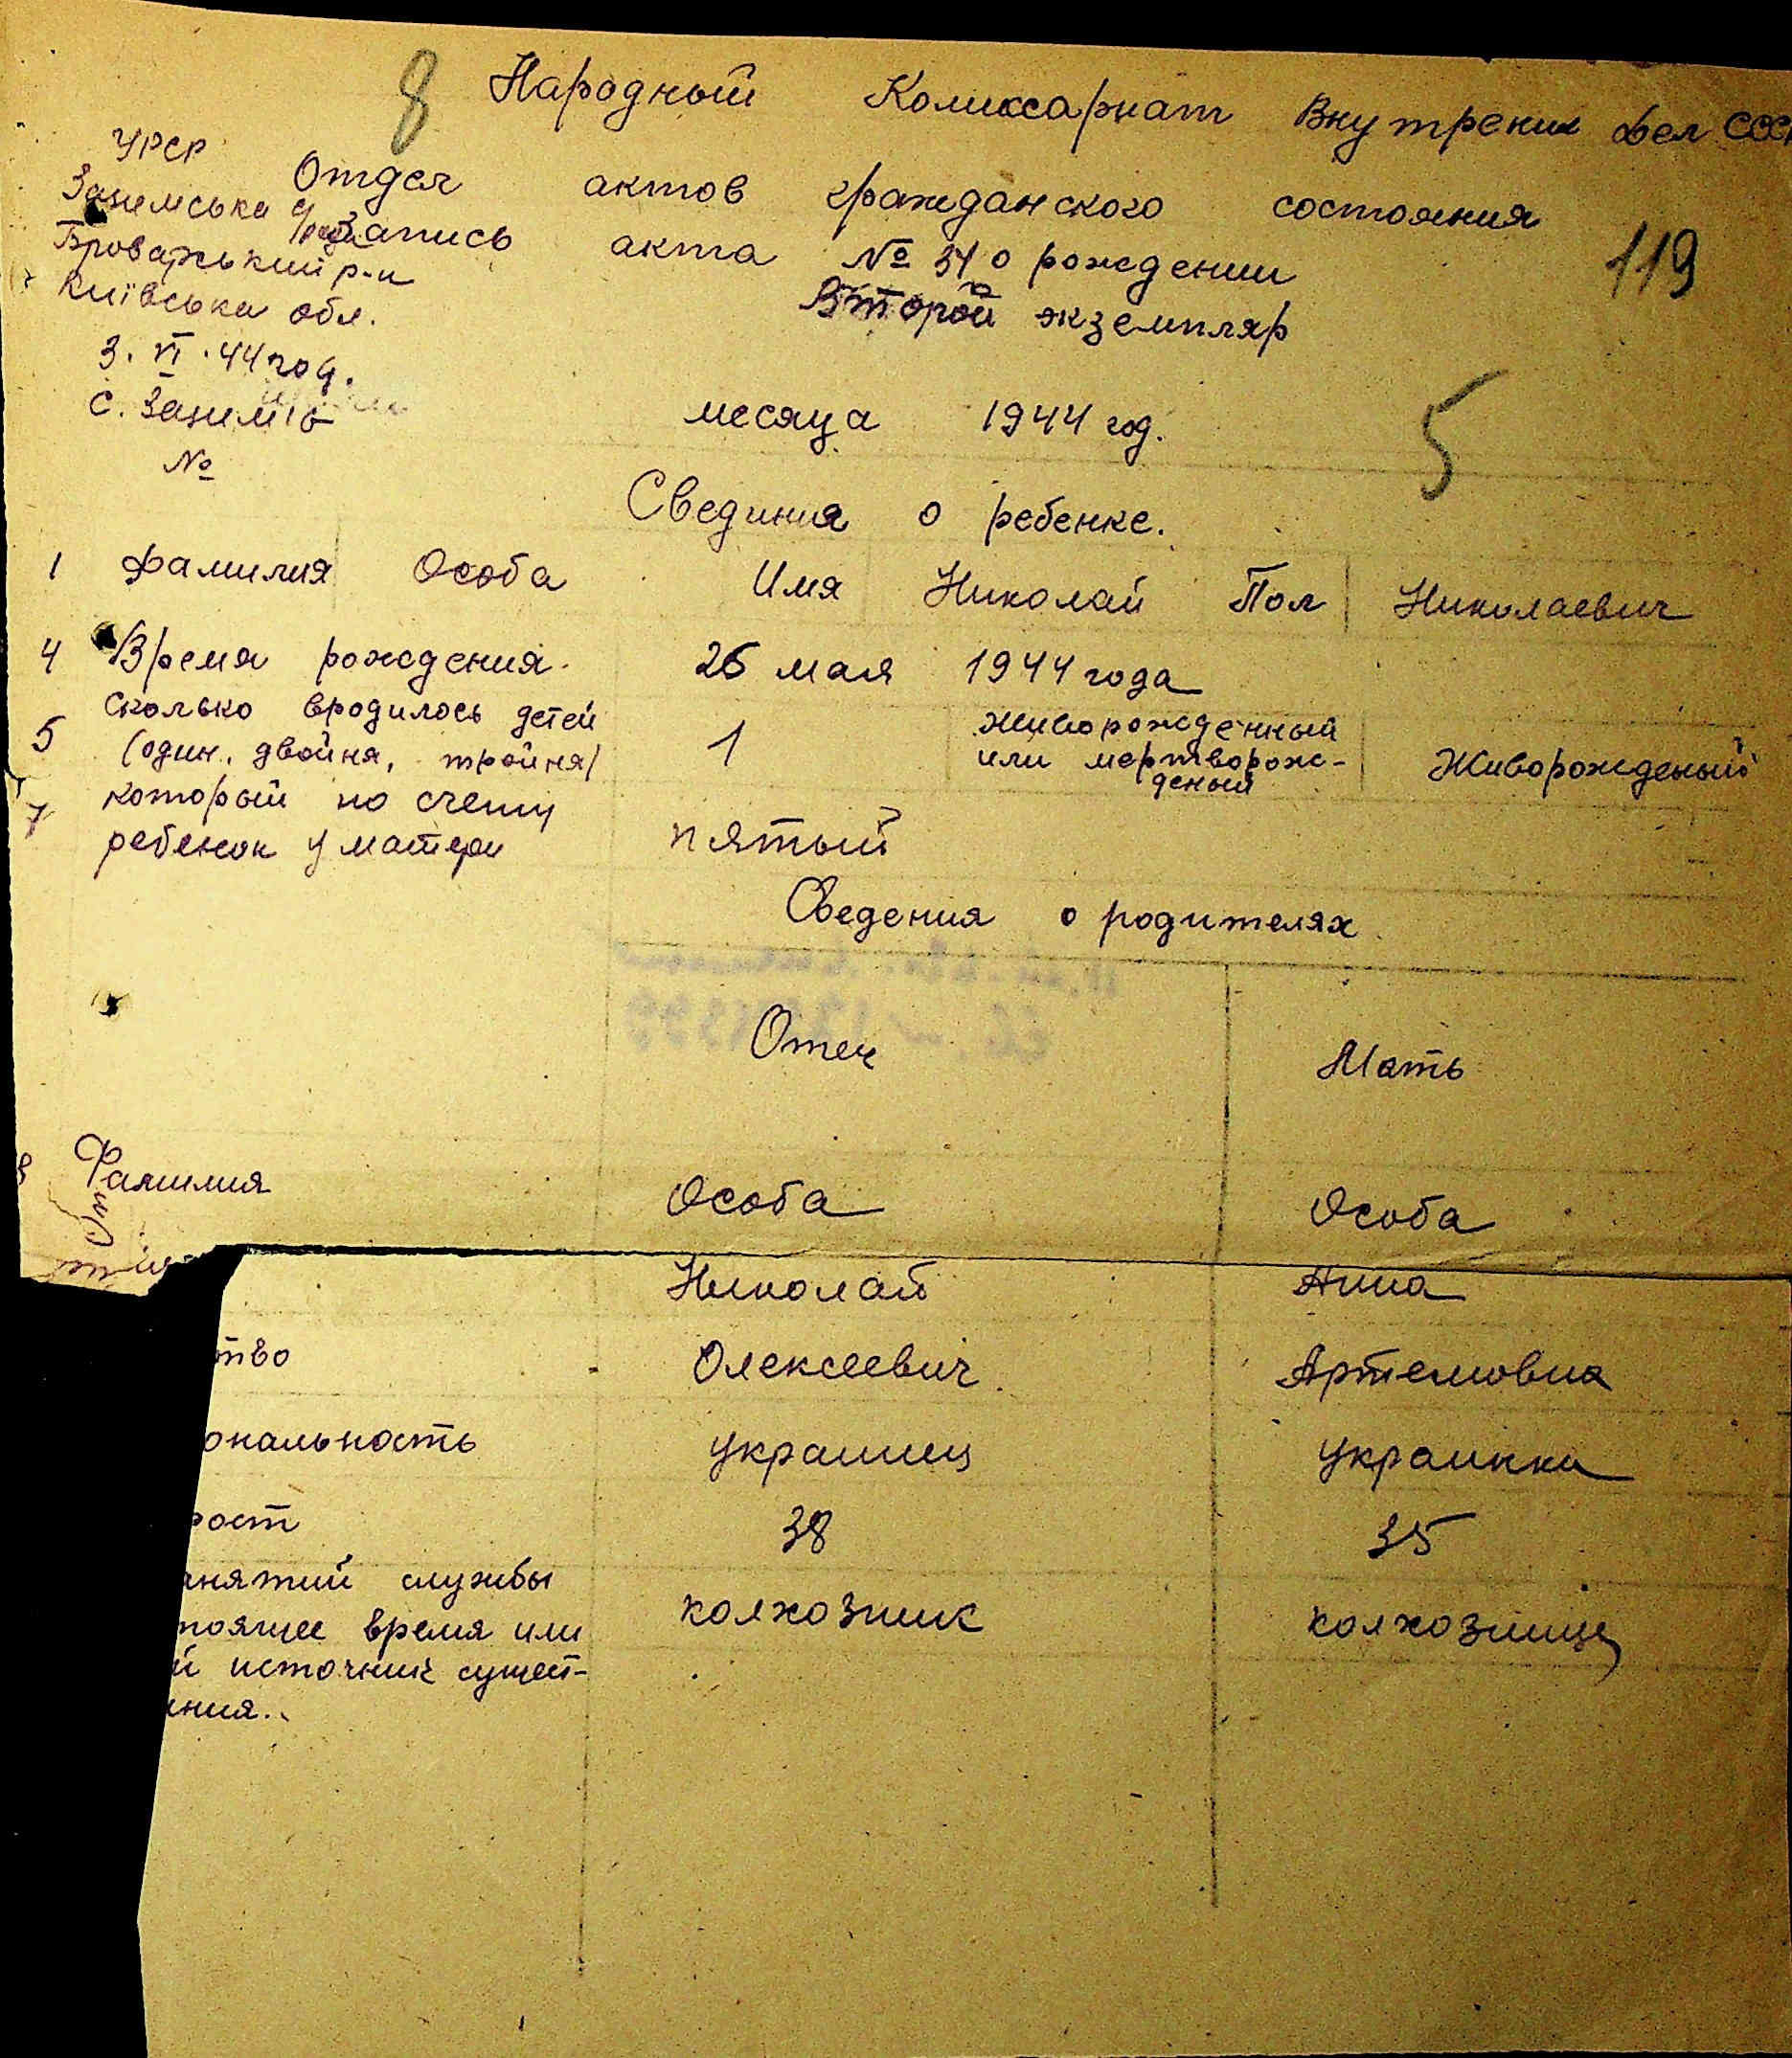 8 Народный Комиссариат Внутрених Дел СССР
УРСР
Отдел актов гражданского состояния
Зазимська с/рада
Запись акта № 34 о рождении
119
Броварський р-н
Второй экземпляр
Київська обл.
3. VI. 44 год.
с. Зазимʼє
месяца 1944 год.
5
№
Свединия о ребенке.
1 Фамилия Особа Имя Николай Пол Николаевич
4 Время рождения. 26 мая 1944 года
5 Сколько вродилось детей (один, двойня, тройня) 1 живорожденный или мертворож-деный Живорожденый
7 который по счету ребенок у матери пятый
Сведения о родителях
Отец Мать
8 Фамилия Особа Особа
Николай Анна
тво Олексеевич Артемовна
ональность украинец украинка
рост 38 35
анятий службы
тоящее время или колхозник колхозница
й источник сущест-
ния..